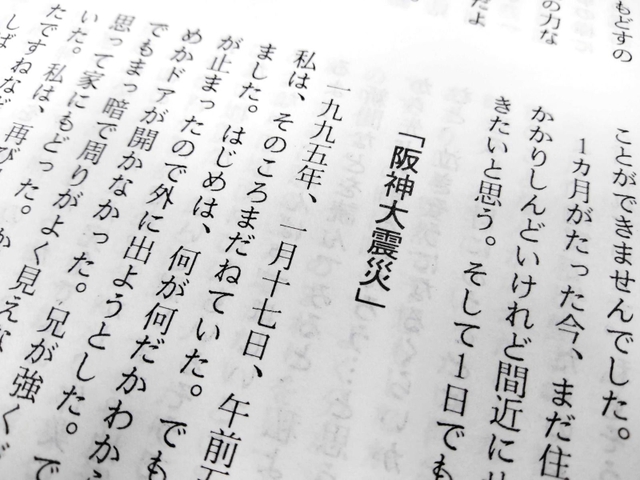 もどすの
の力な
だよ
ことができませんでした。
1カ月がたった今、まだ住
かかりしんどいけれど間近に
きたいと思う。そして1日でも
「阪神大震災」
一九九五年、一月十七日、午前
私は、そのころまだねていた。でも
ました。はじめは、何が何だかわから
が止まったので外に出ようとした。
めかドアが開かなかった。兄が強く
でもまっ暗で周りがよく見えな
思って家にもどった。か
いた。私は、再び
たですねなだ
しば